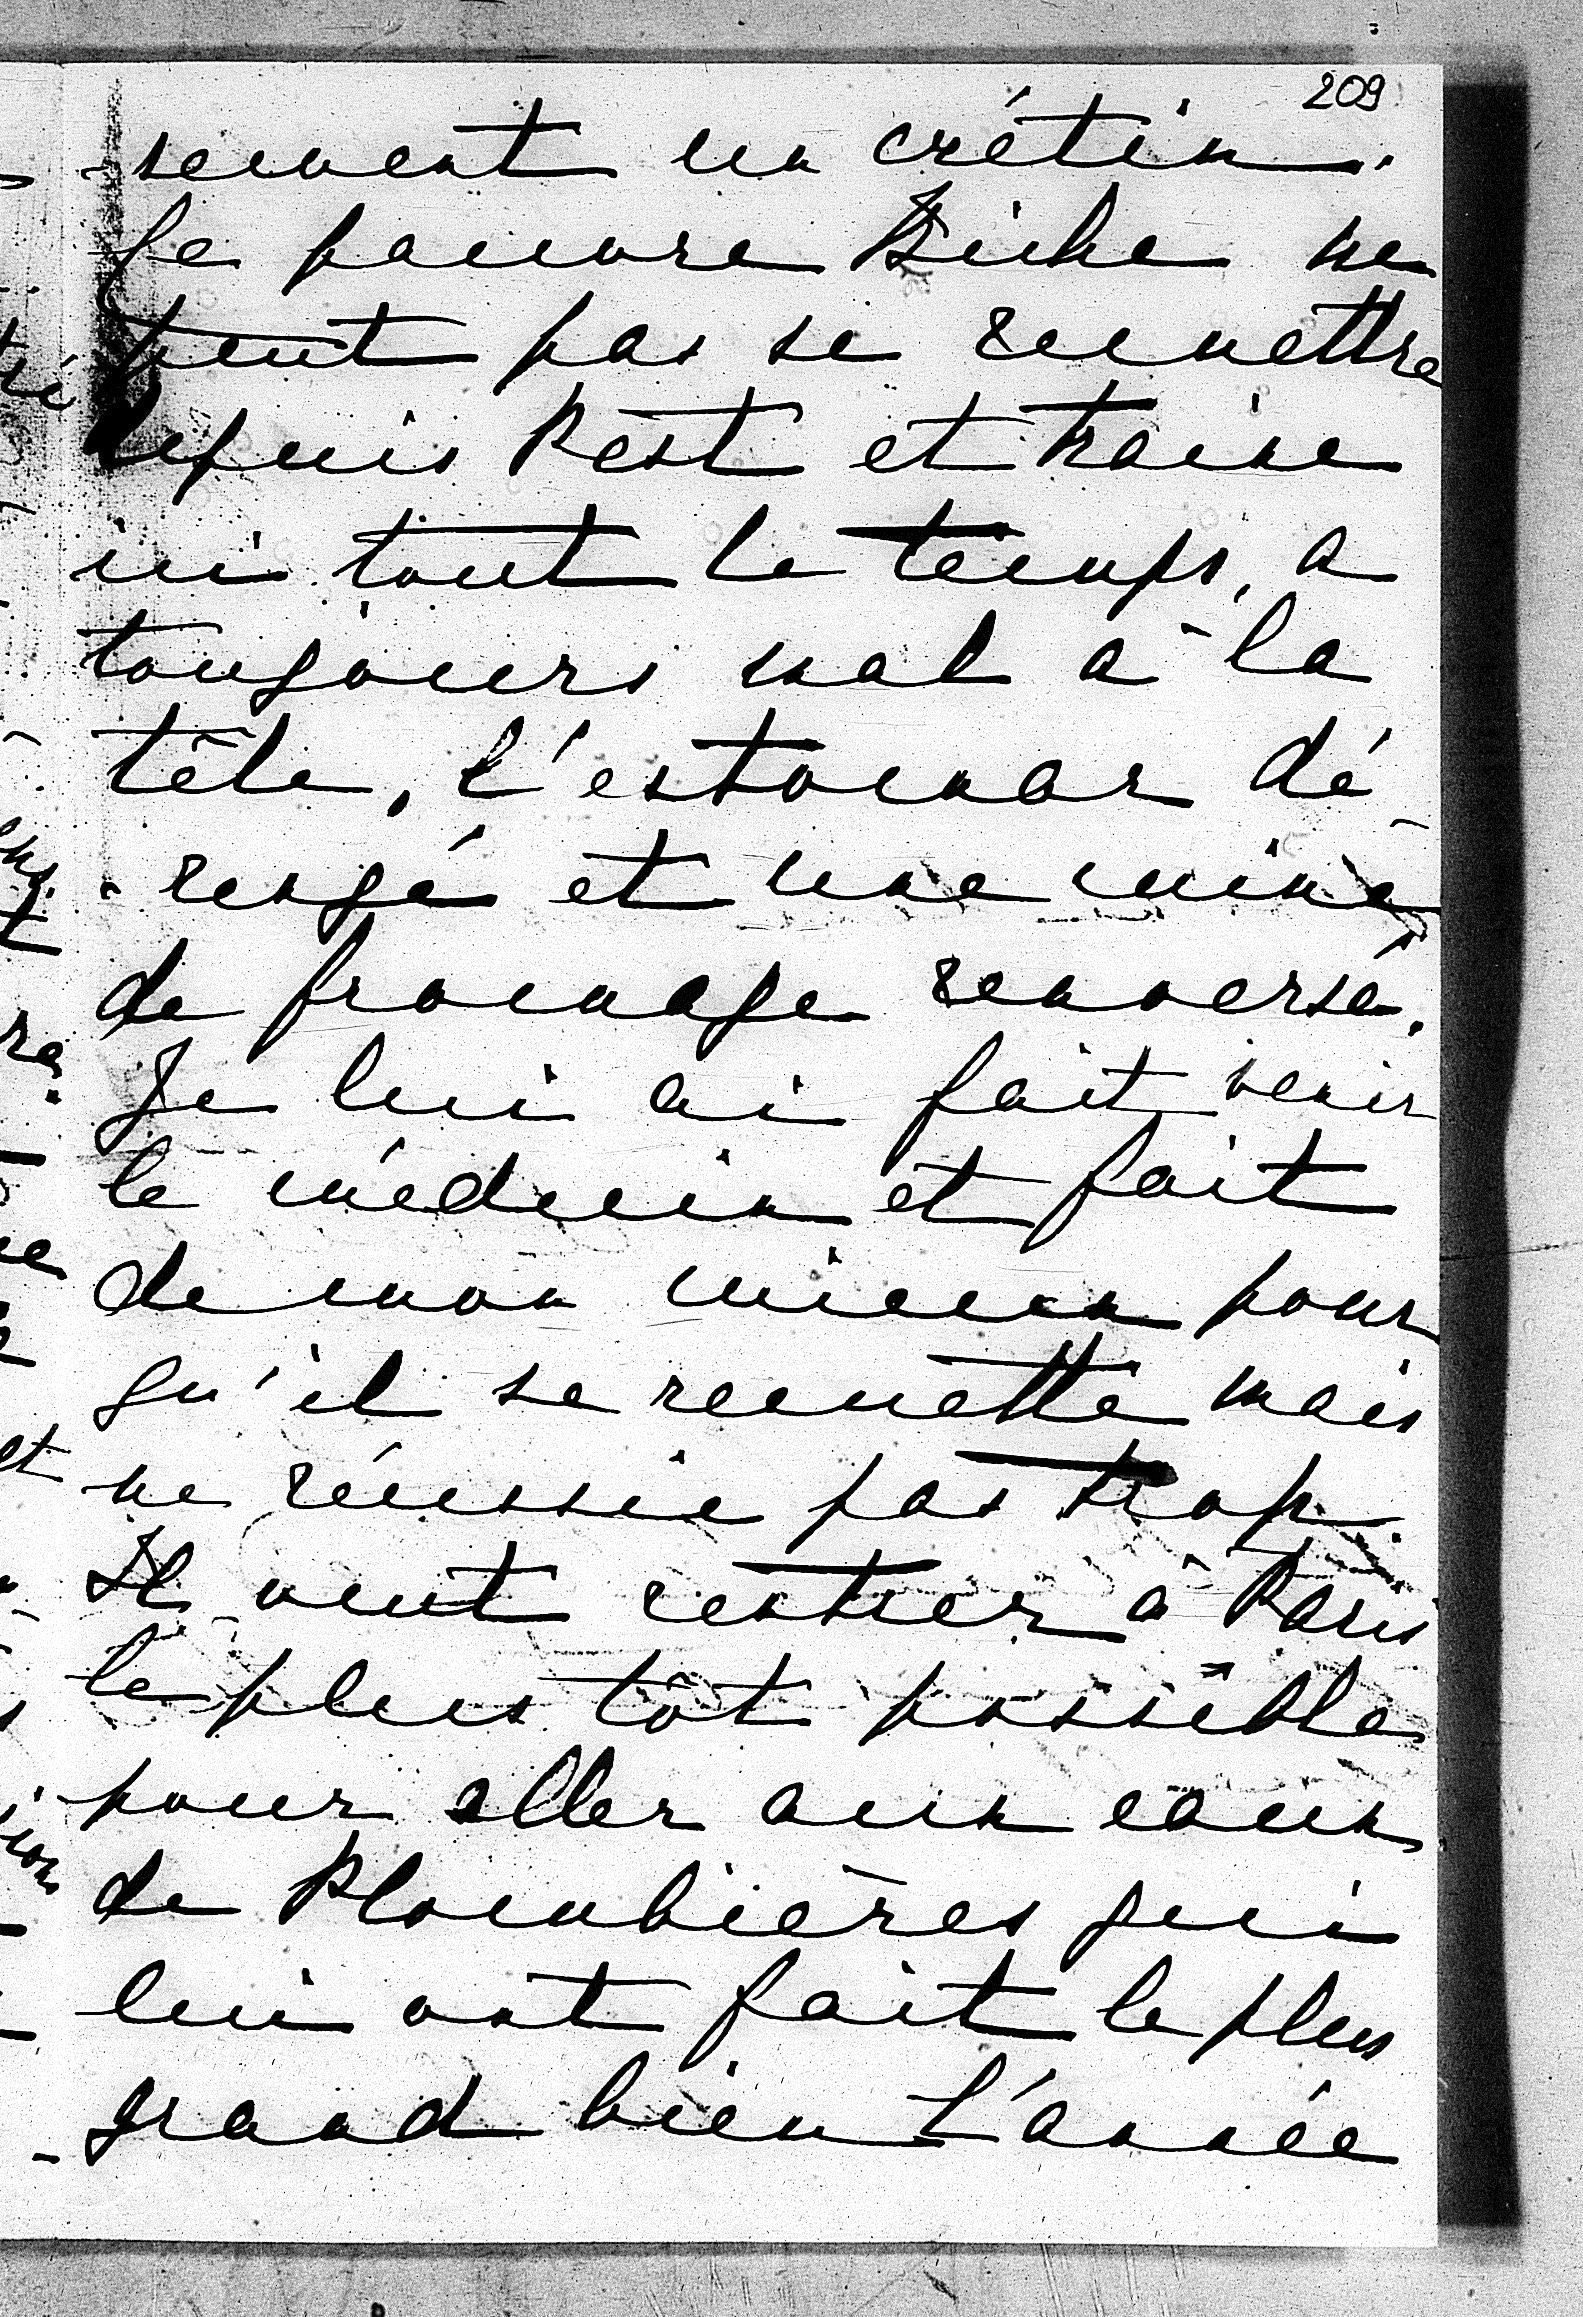 209
-sement un crétin.
Le pauvre Biche ne
peut pas se remettre
depuis Pest et traine
ici tout le temps, a
toujours mal à la
tête, l'estomac dé
-rengé et une mine
de fromage renversé.
Je lui ai fait venir
le médecin et fait
de mon mieux pour
qu'il se remette mais
ne réussie pas trop.
Il veut rentrer à Paris
le plus tôt possible
pour aller aux eaux
de Plombières qui
lui ont fait le plus
grand bien l'année